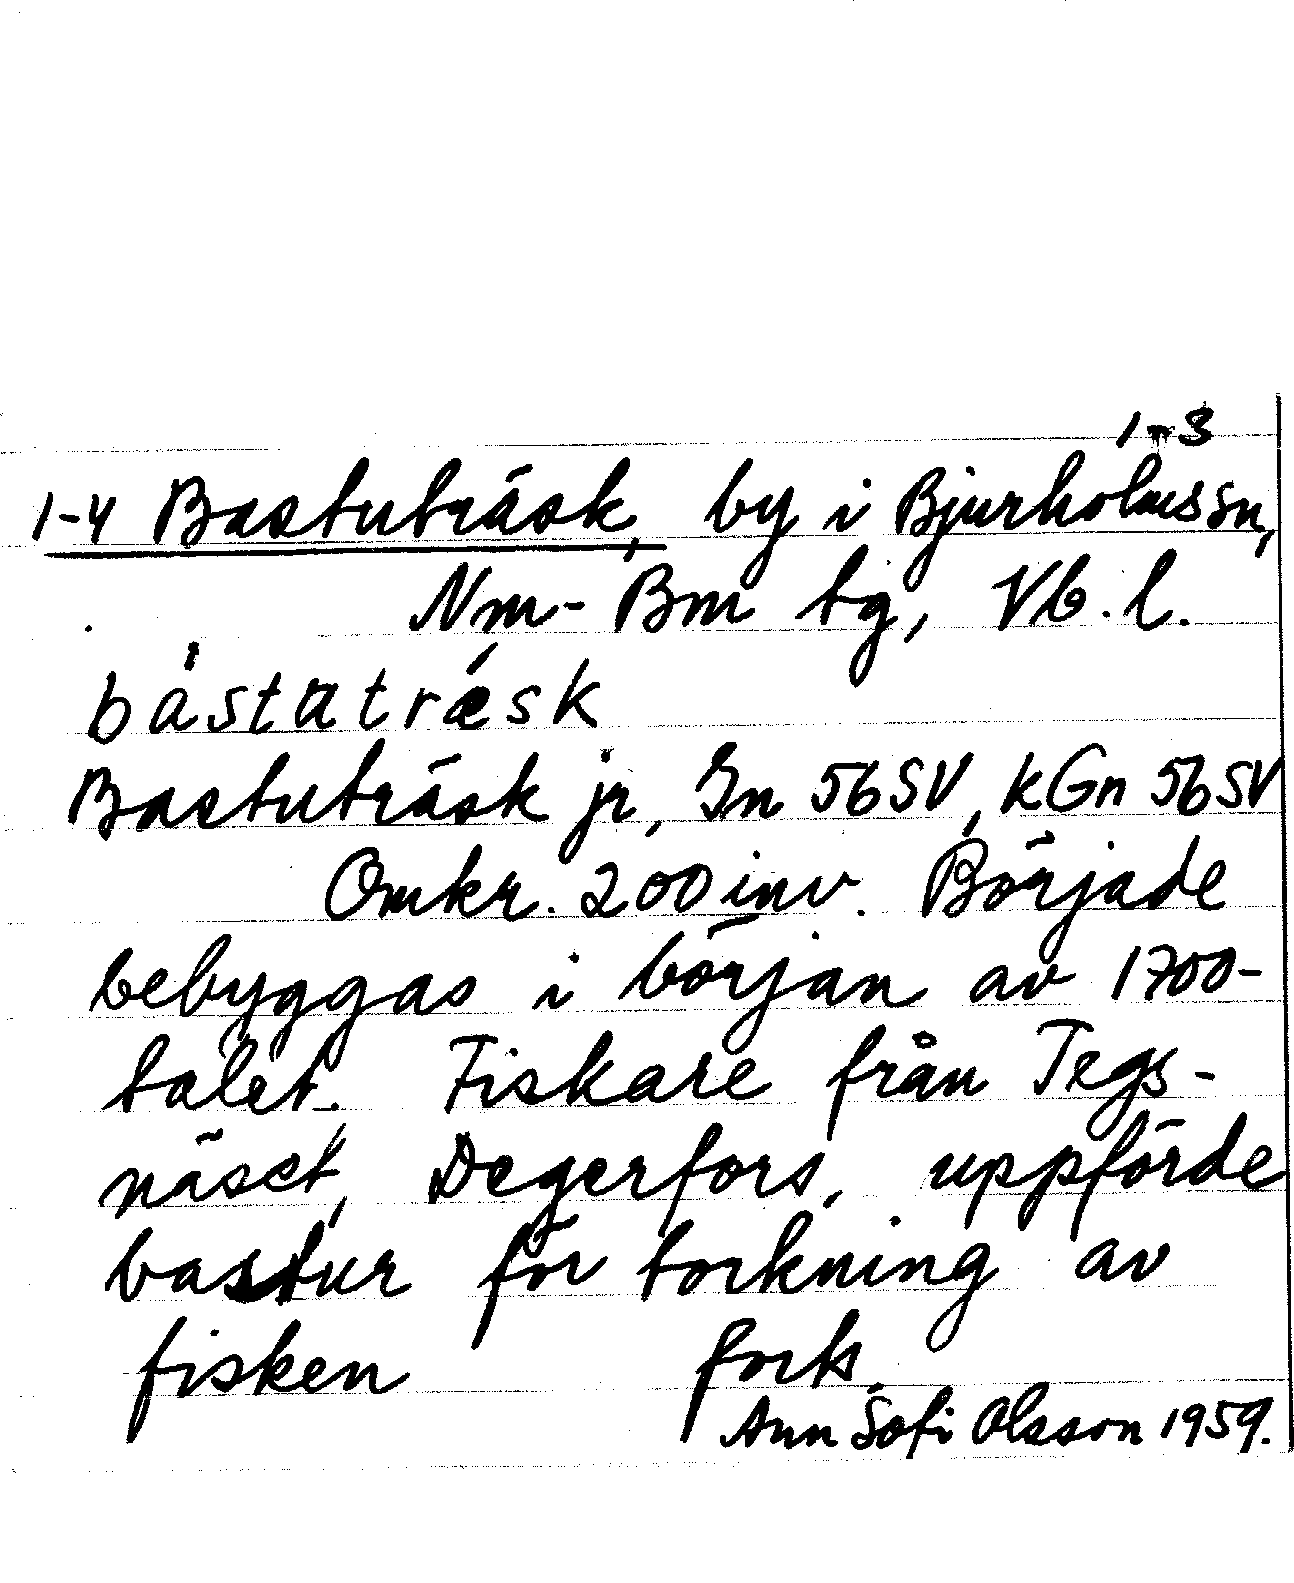 1-3
1-4 Bastuträsk, by i Bjurholms sn,
Nm- Bm tg, Vb. l.
båstatræsk
Bastuträsk jr, Gn 56SV, kGn 56SV
Omkr. 200 inv. Började
bebyggas i början av 1700-
talet. Fiskare från Tegs-
näset, Degerfors, uppförde
bastur för torkning av
fisken forts.
Ann Sofi Olsson 1959.